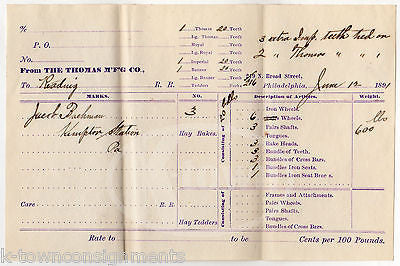 %
P. O.
No.
From THE THOMAS M'F'G CO.,
To Reading R. R.
1 Thomas 20 Teeth
Lg. Thomas Teeth
Royal Teeth
Lg. Royal Teeth
1 Imperial 20 Teeth
Lg. Imperial Teeth
1 Banner 20 Teeth
Lg. Banner Teeth
Tedders Forks
3 extra Impl. teeth tied on
2 " Thomas " " "
216 N. Broad Street,
Philadelphia, June 12 1891
MARKS. No. Description of Articles. Weight.
Jacob Bachman
Kempton Station
Pa
3
Hay Rakes.
Consisting of
Iron Wheels. lbs
6 Wheels. 600
3 Pairs Shafts.
Tongues.
3 Rake Heads.
3 Bundles of Teeth.
3 Bundles of Cross Bars.
1 Bundles Iron Seats.
1 Bundles Iron Seat Bars
Care R. R.
Hay Tedders
Consisting of
Frames and Attachments.
Pairs Wheels.
Pairs Shafts.
Tongues.
Bundles of Cross Bars.
Rate to to be Cents per 100 Pounds.
k-townconsignments